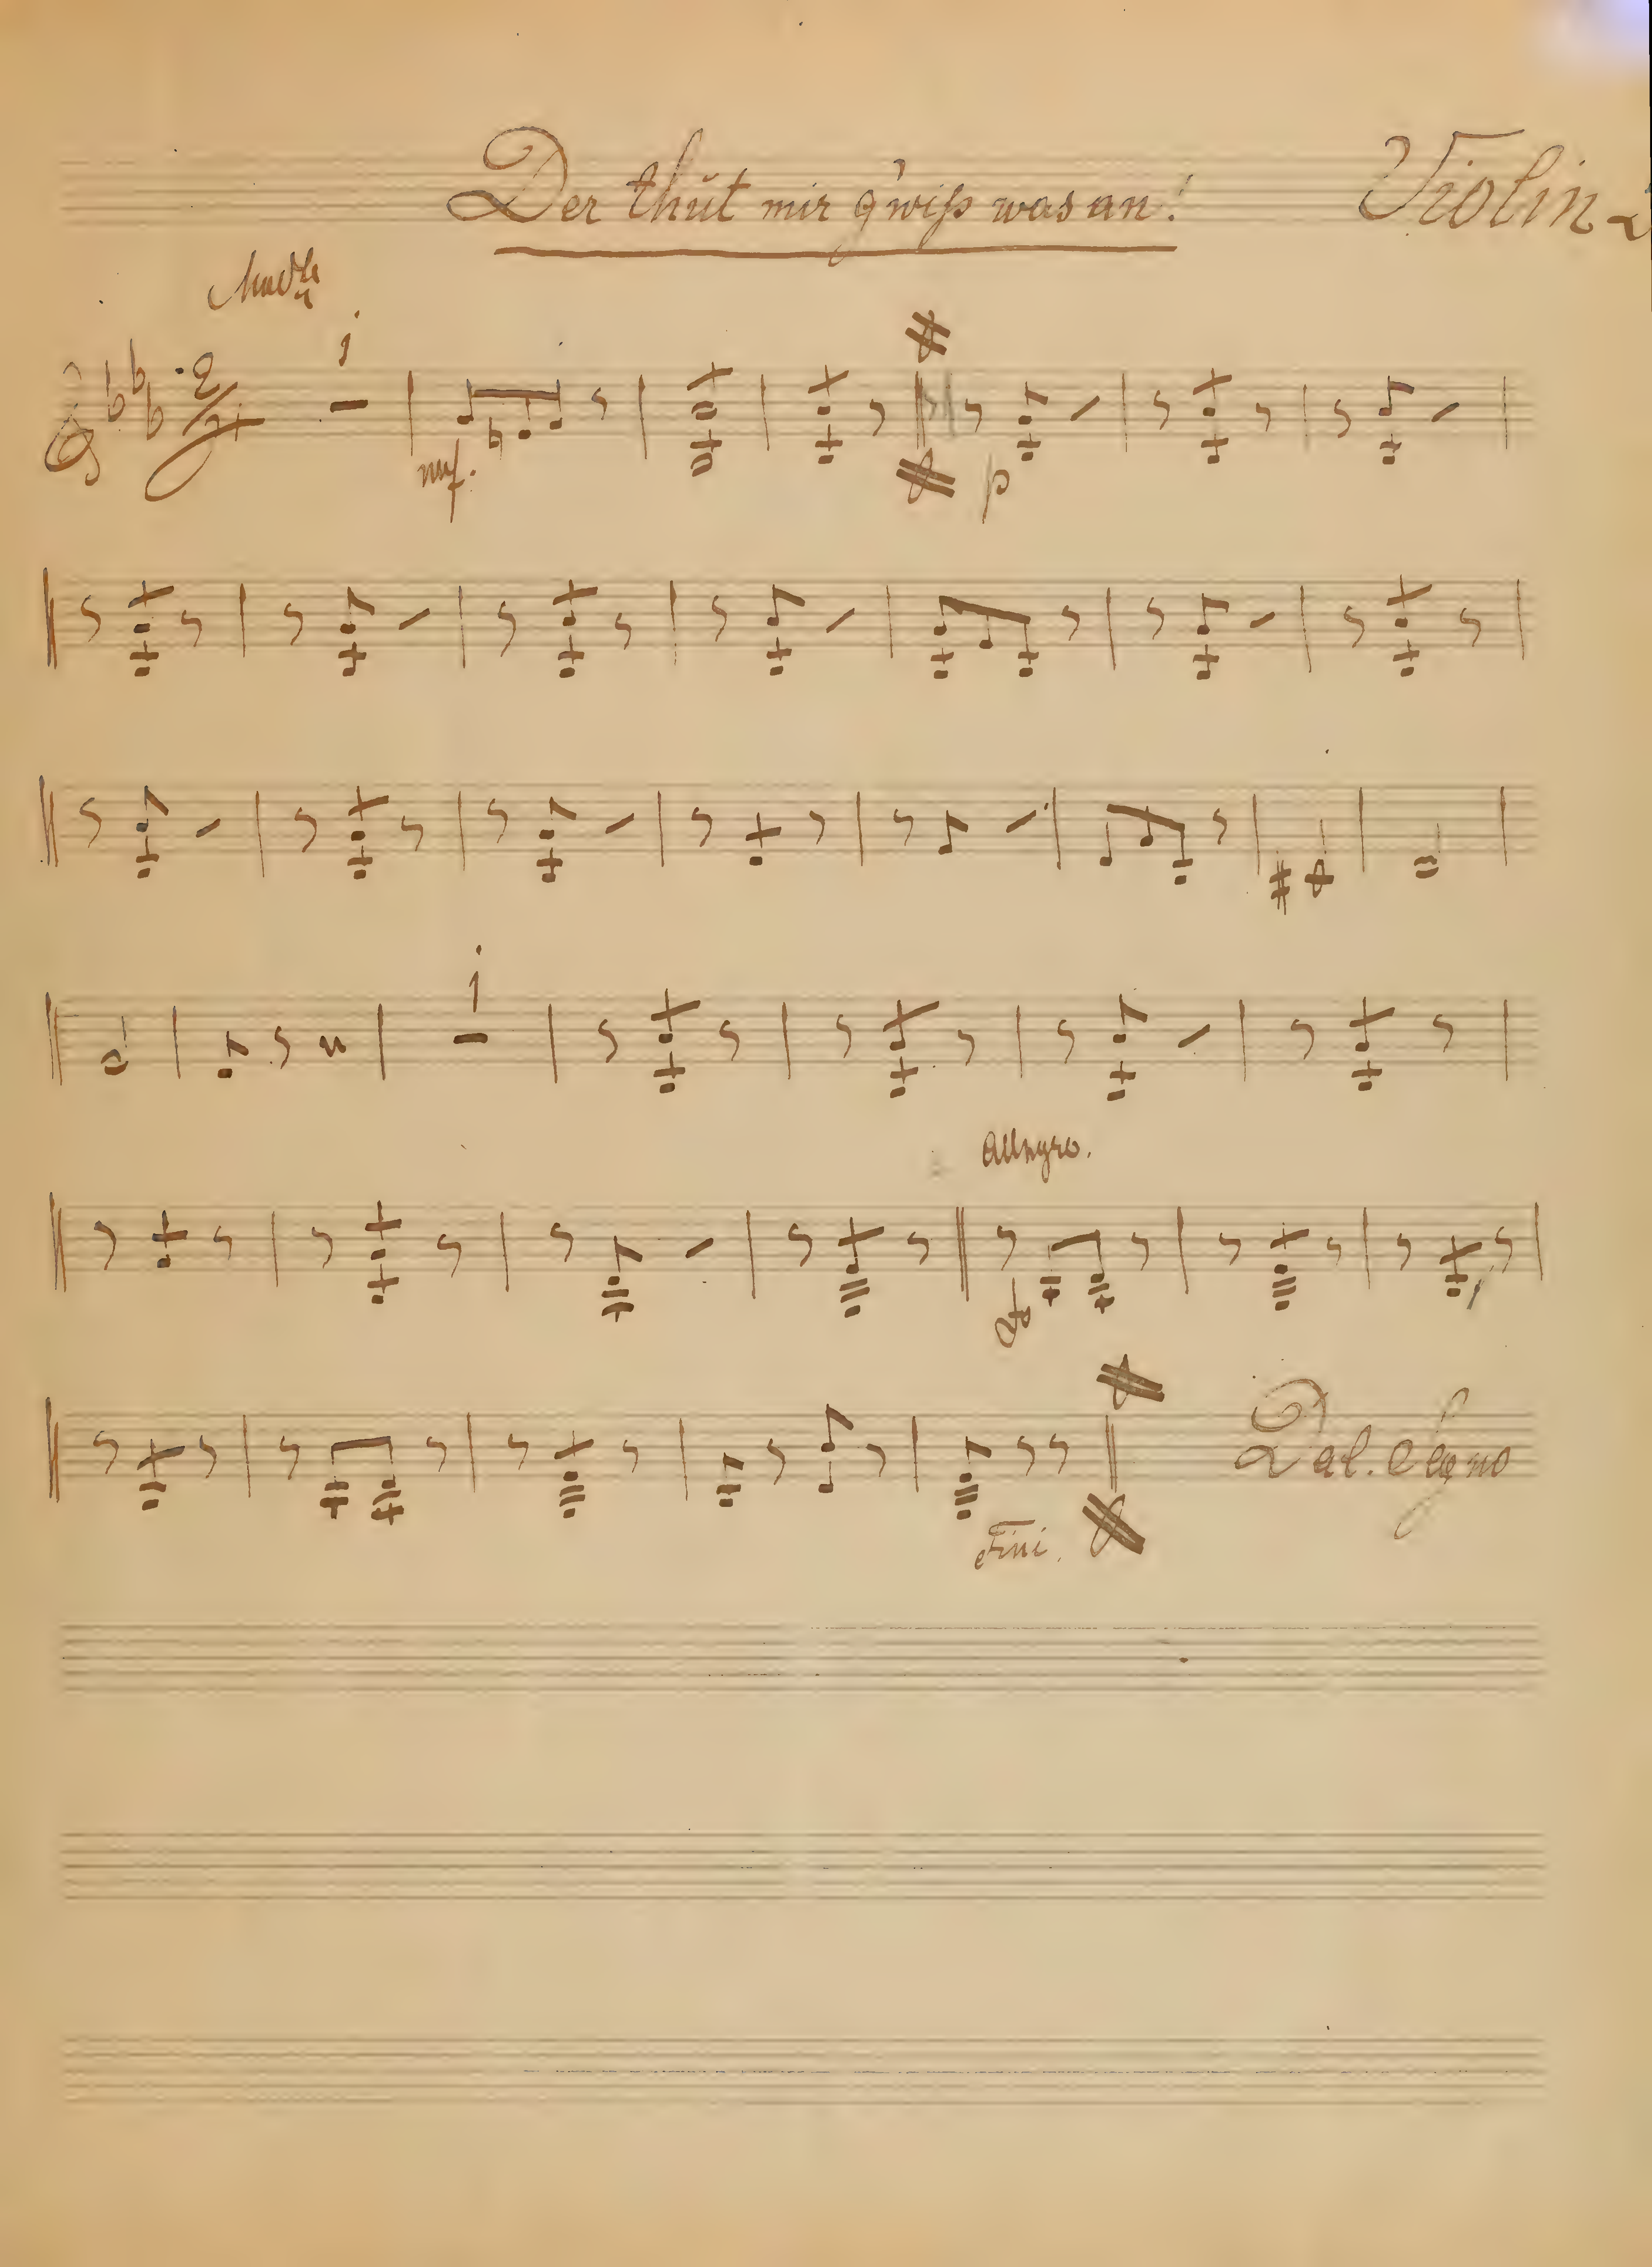 Der thŭt mir g'wiß was an! Violin 2
1
mf.
p
1
Allegro.
Fini.
Dal. Segno